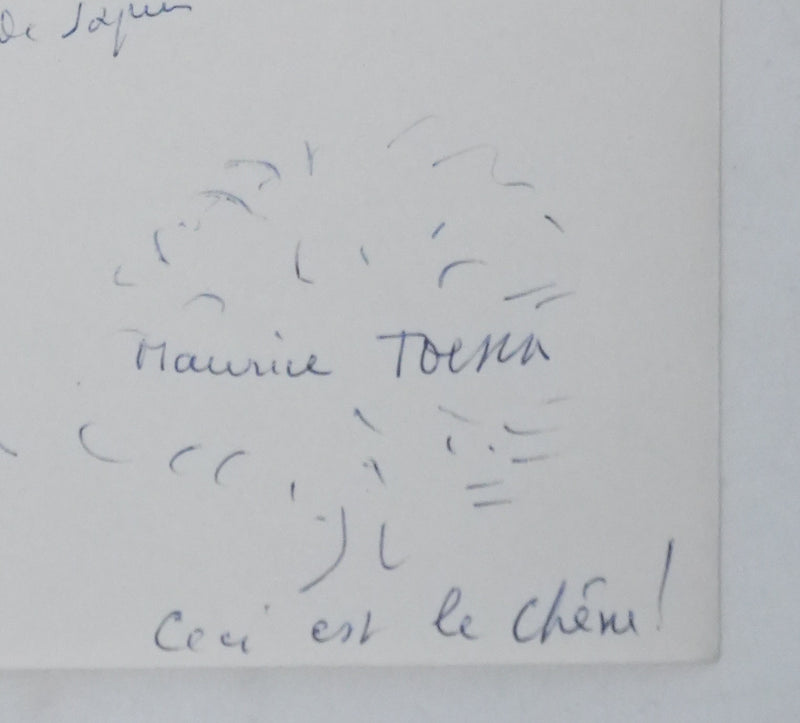 de Sapin
Maurice Toesca
Ceci est le chêne!